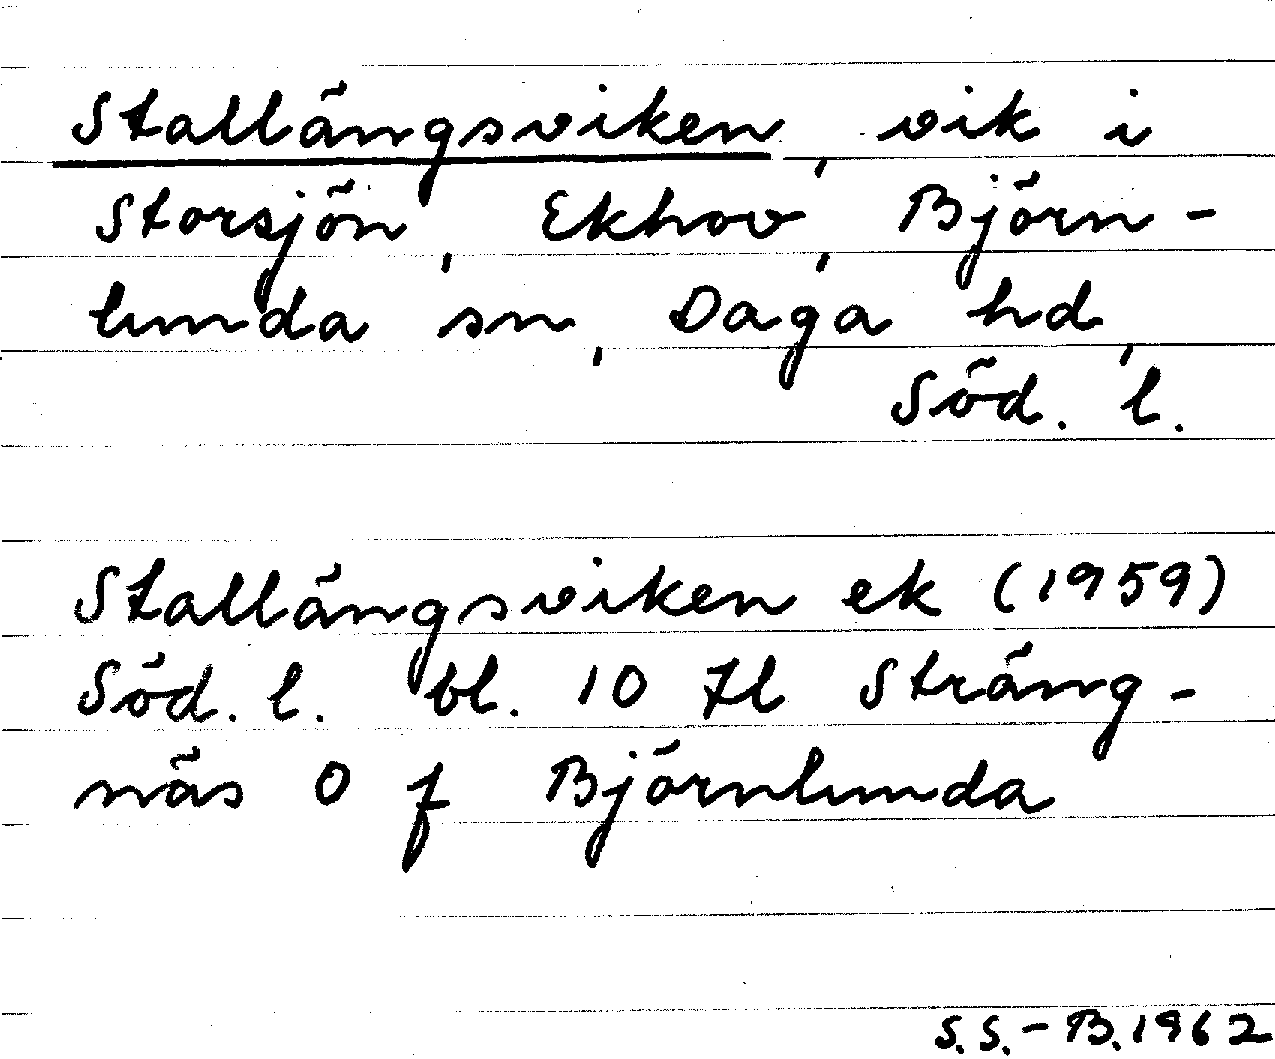 Stallängsviken, vik i
Storsjön, Ekhov, Björn-
lunda sn, Daga hd,
Söd. l.
Stallängsviken ek (1959)
Söd. l. bl. 10 7l Sträng-
näs O f Björnlunda
S.S.-B. 1962